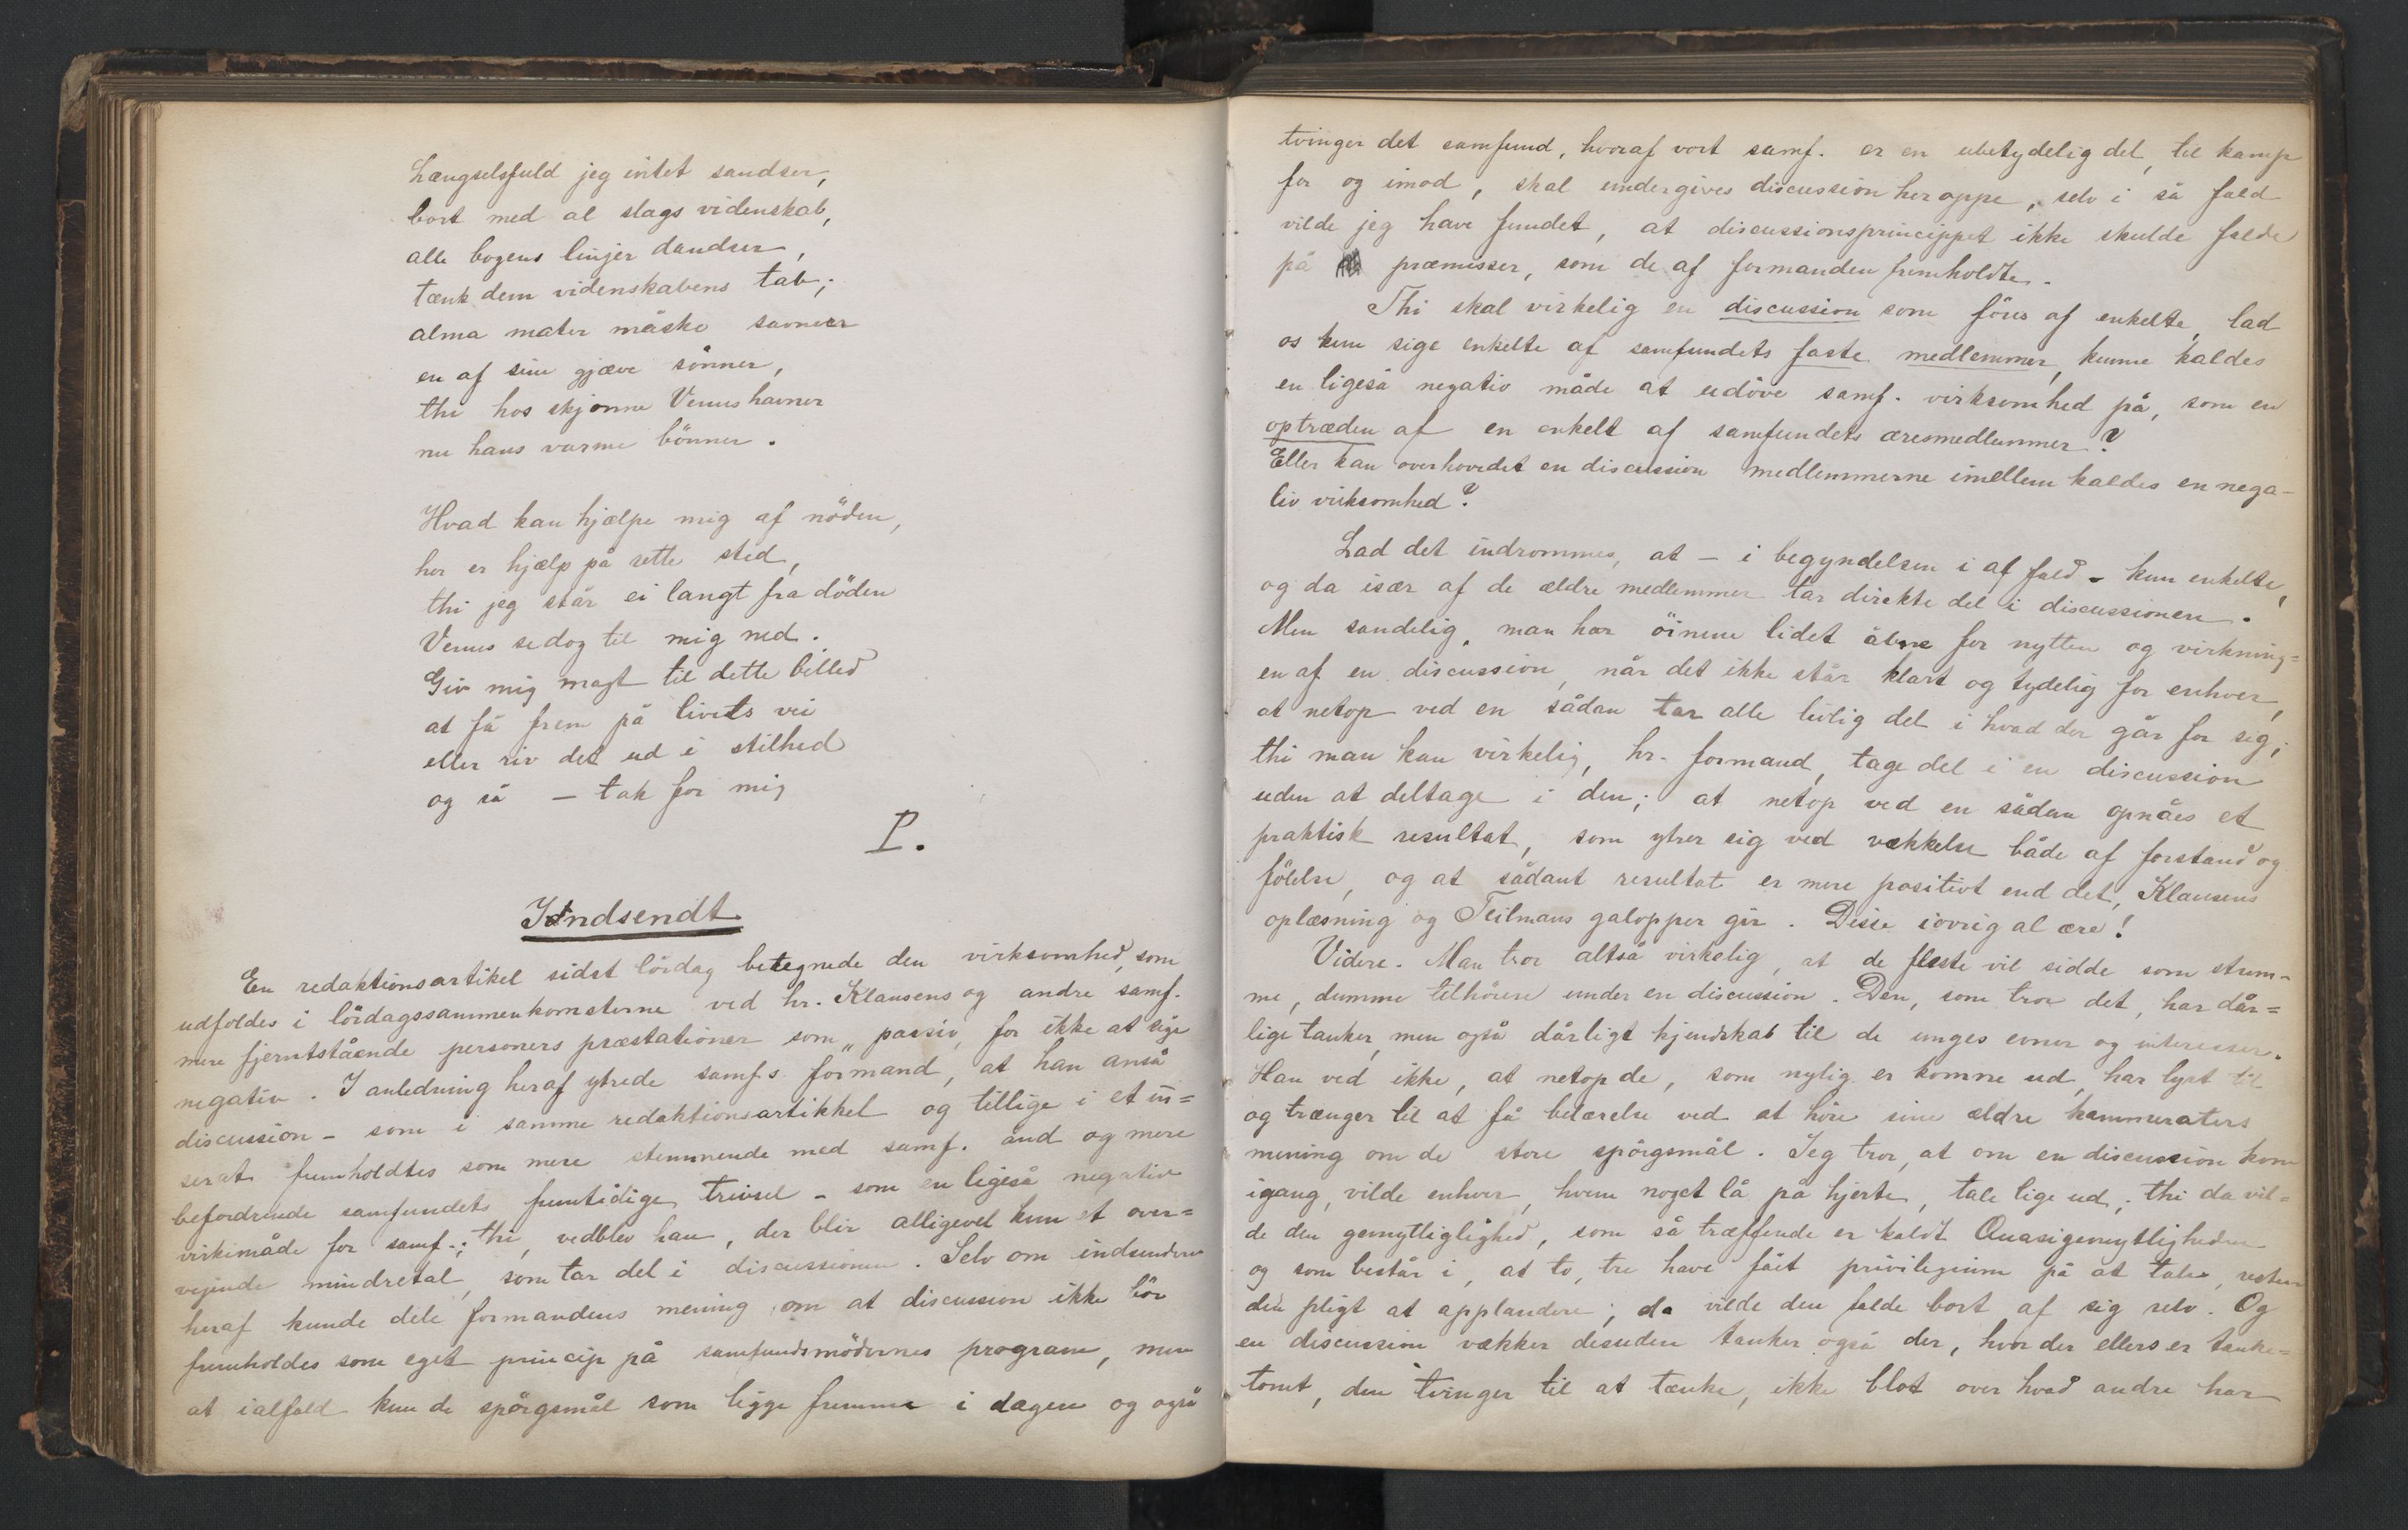 Længselsfuld jeg intet sandser,
bort med al slags videnskab,
alle bogens linjer dandser,
tænk dem videnskabens tab;
alma mater måske savner
en af sine gjæve sönner,
thi hos skjønne Venus havner
nu hans varme bönner.
Hvad kan hjælpe mig af nöden,
her er hjælp på rette sted,
thi jeg står ei langt fra döden
Venus se dog til mig ned.
Giv mig magt til dette billed
at få frem på livets vei
eller riv det ud i stilhed
og så – tak for mig
P.
Indsendt
En redaktionsartikel sidst lördag betegnede den virksomhed, som
udfoldes i lördagssammenkomsterne ved hr. Klausens og andre samf.
mere fjerntstående personers præstationer som "passiv, for ikke at sige
negativ. I anledning heraf ytrede samf.s formand, at han anså
discussion – som i samme redaktionsartikkel og tillige i et in=
serat fremholdtes som mere stemmende med samf. ånd og mere
befordrende samfundets fremtidige trivsel – som en ligeså negativ
virkemåde for samf.; thi, vedblev han, der blir alligevel kun et over=
vejende mindretal, som tar del i discussionen. Selv om indsenderen
heraf kunde dele formandens mening om at discussion ikke bör
fremholdes som eget princip på samfundsmödernes program, men
at ialfald kun de spörgsmål som ligge fremme i dagen og også
tvinger det samfund, hvoraf vort samf. er en ubetydelig del, til kamp
for og imod, skal undergives discussion her oppe, selv i så fald
vilde jeg have fundet, at discussionsprincippet ikke skulde falde
på præmisser, som de af formanden fremholdte.
Thi skal virkelig en discussion som föres af enkelte, lad
os kun sige enkelte af samfundets faste medlemmer, kunne kaldes
en ligeså negativ måde at udöve samf. virksomhed på, som en
optræden af en enkelt af samfundets æresmedlemmer?
Eller kan overhovedet en discussion medlemmerne imellem kaldes en nega–
tiv virksomhed?
Lad det indrømmes, at – i begyndelsen i al fald – kun enkelte,
og da især af de ældre medlemmer tar direkte del i discussionen.
Men sandelig, man har öinene lidet åbne for nytten og virkning=
en af en discussion, når det ikke står klart og tydelig for enhver,
at netop ved en sådan tar alle livlig del i hvad der går for sig;
thi man kan virkelig, hr. formand, tage del i en discussion
uden at deltage i den; at netop ved en sådan opnåes et
praktisk resultat, som ytrer sig ved vækkelse både af forstand og
fölelse, og at sådant resultat er mere positivt end det, Klausens
oplæsning og Teilmans galopper gir. Disse iövrig al ære!
Videre. Man tror altså virkelig, at de fleste vil sidde som stum–
me, dumme tilhörere under en discussion. Den, som tror det, har dår=
lige tanker, men også dårligt kjendskab til de unges evner og interesser.
Han ved ikke, at netop de, som nylig er komne ud, har lyst til
og trænger til at få belærelse ved at höre sine ældre kammeraters
mening om de store spörgsmål. Jeg tror, at om en discussion kom
igang, vilde enhver, hvem noget lå på hjerte, tale lige ud; thi da vil=
de den gemytliglighed, som så træffende er kaldt Quasigemytligheden
og som består i, at to, tre have fåit privilegium på at tale, resten
den pligt at applaudere; da vilde den falde bort af sig selv. Og
en discussion vækker desuden tanker også der, hvor der ellers er tanke=
tomt, den tvinger til at tænke, ikke blot over hvad andre har